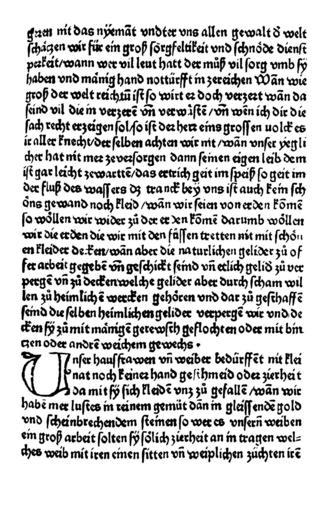 gern nit das nyemāt vndter vns allen gewalt ð welt
schāczen wir für ein groß sörgfeltikeit vnd schnöde dienst
perkeit/wann wer vil leut hatt der můß vil sorg vmb sy
haben vnd mānig hand nottürfft in zereichen Wān wie
groß der welt reichtū ist so wirt er doch verzert wān da
seind vil die in verzerē vñ verwůstē/ vñ wēn ich dir die
sach recht erzeigen sol/so ist der herr eins grossen uolck es
ir aller knecht/der selben achten wir nit/wān vnser yegli
cher hat nit mer zeversorgen dann seinen eigen leib dem
ist gar leicht zewartē/das ertrich geit im speiß so geit im
der fluß des wassers dz tranck bey vns ist auch kein sch
öns gewand noch kleid/wān wir seien von erden kōmē
so wöllen wir wider zů der erden kōmē darumb wöllen
wir die erden die wir mit den füssen tretten nit mit schön
en kleider decken/wān aber die naturlichen gelider zů of
fer arbeit gegebē vñ geschickt seind vñ etlich gelid zů ver
pergē vñ zů deckenwelche gelider aber durch scham wil
len zů heimlichē wercken gehören vnd dar zů geschaffē
seind die selben heimlichen gelider verpergē wir vnd de
cken sy zů mit mānigē gerewsch geflochten oder mit bin
tzen oder andrē weichem gewechs .
Unser haußfrawen vñ weiber bedürffēt nit klei
nat noch keiner hand geschmeid oder zierheit
da mit sy sich kleidē vnz zů gefallē/wān wir
habē mer lustes in reinem gemüt dān in gleissendē gold
vnd scheinbrechendem steinen so wer es vnsern weiben
ein groß arbeit solten sy sölich zierheit an in tragen wel-
ches weib mit iren einen sitten vñ weiplichen züchten irē